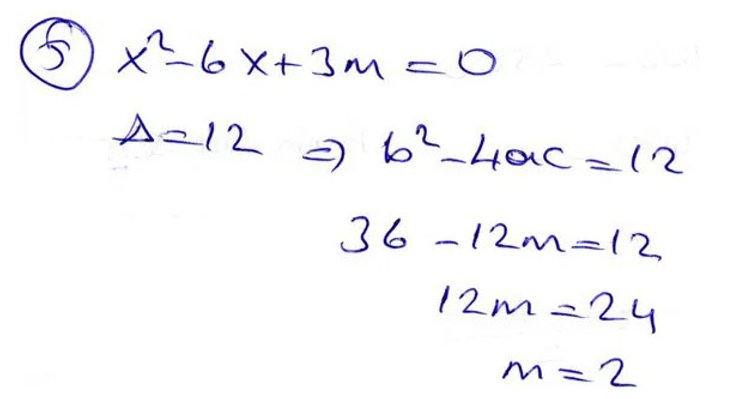 ⑤ x²-6x+3m=0
Δ=12 ⇒ b²-4ac=12
36-12m=12
12m=24
m=2